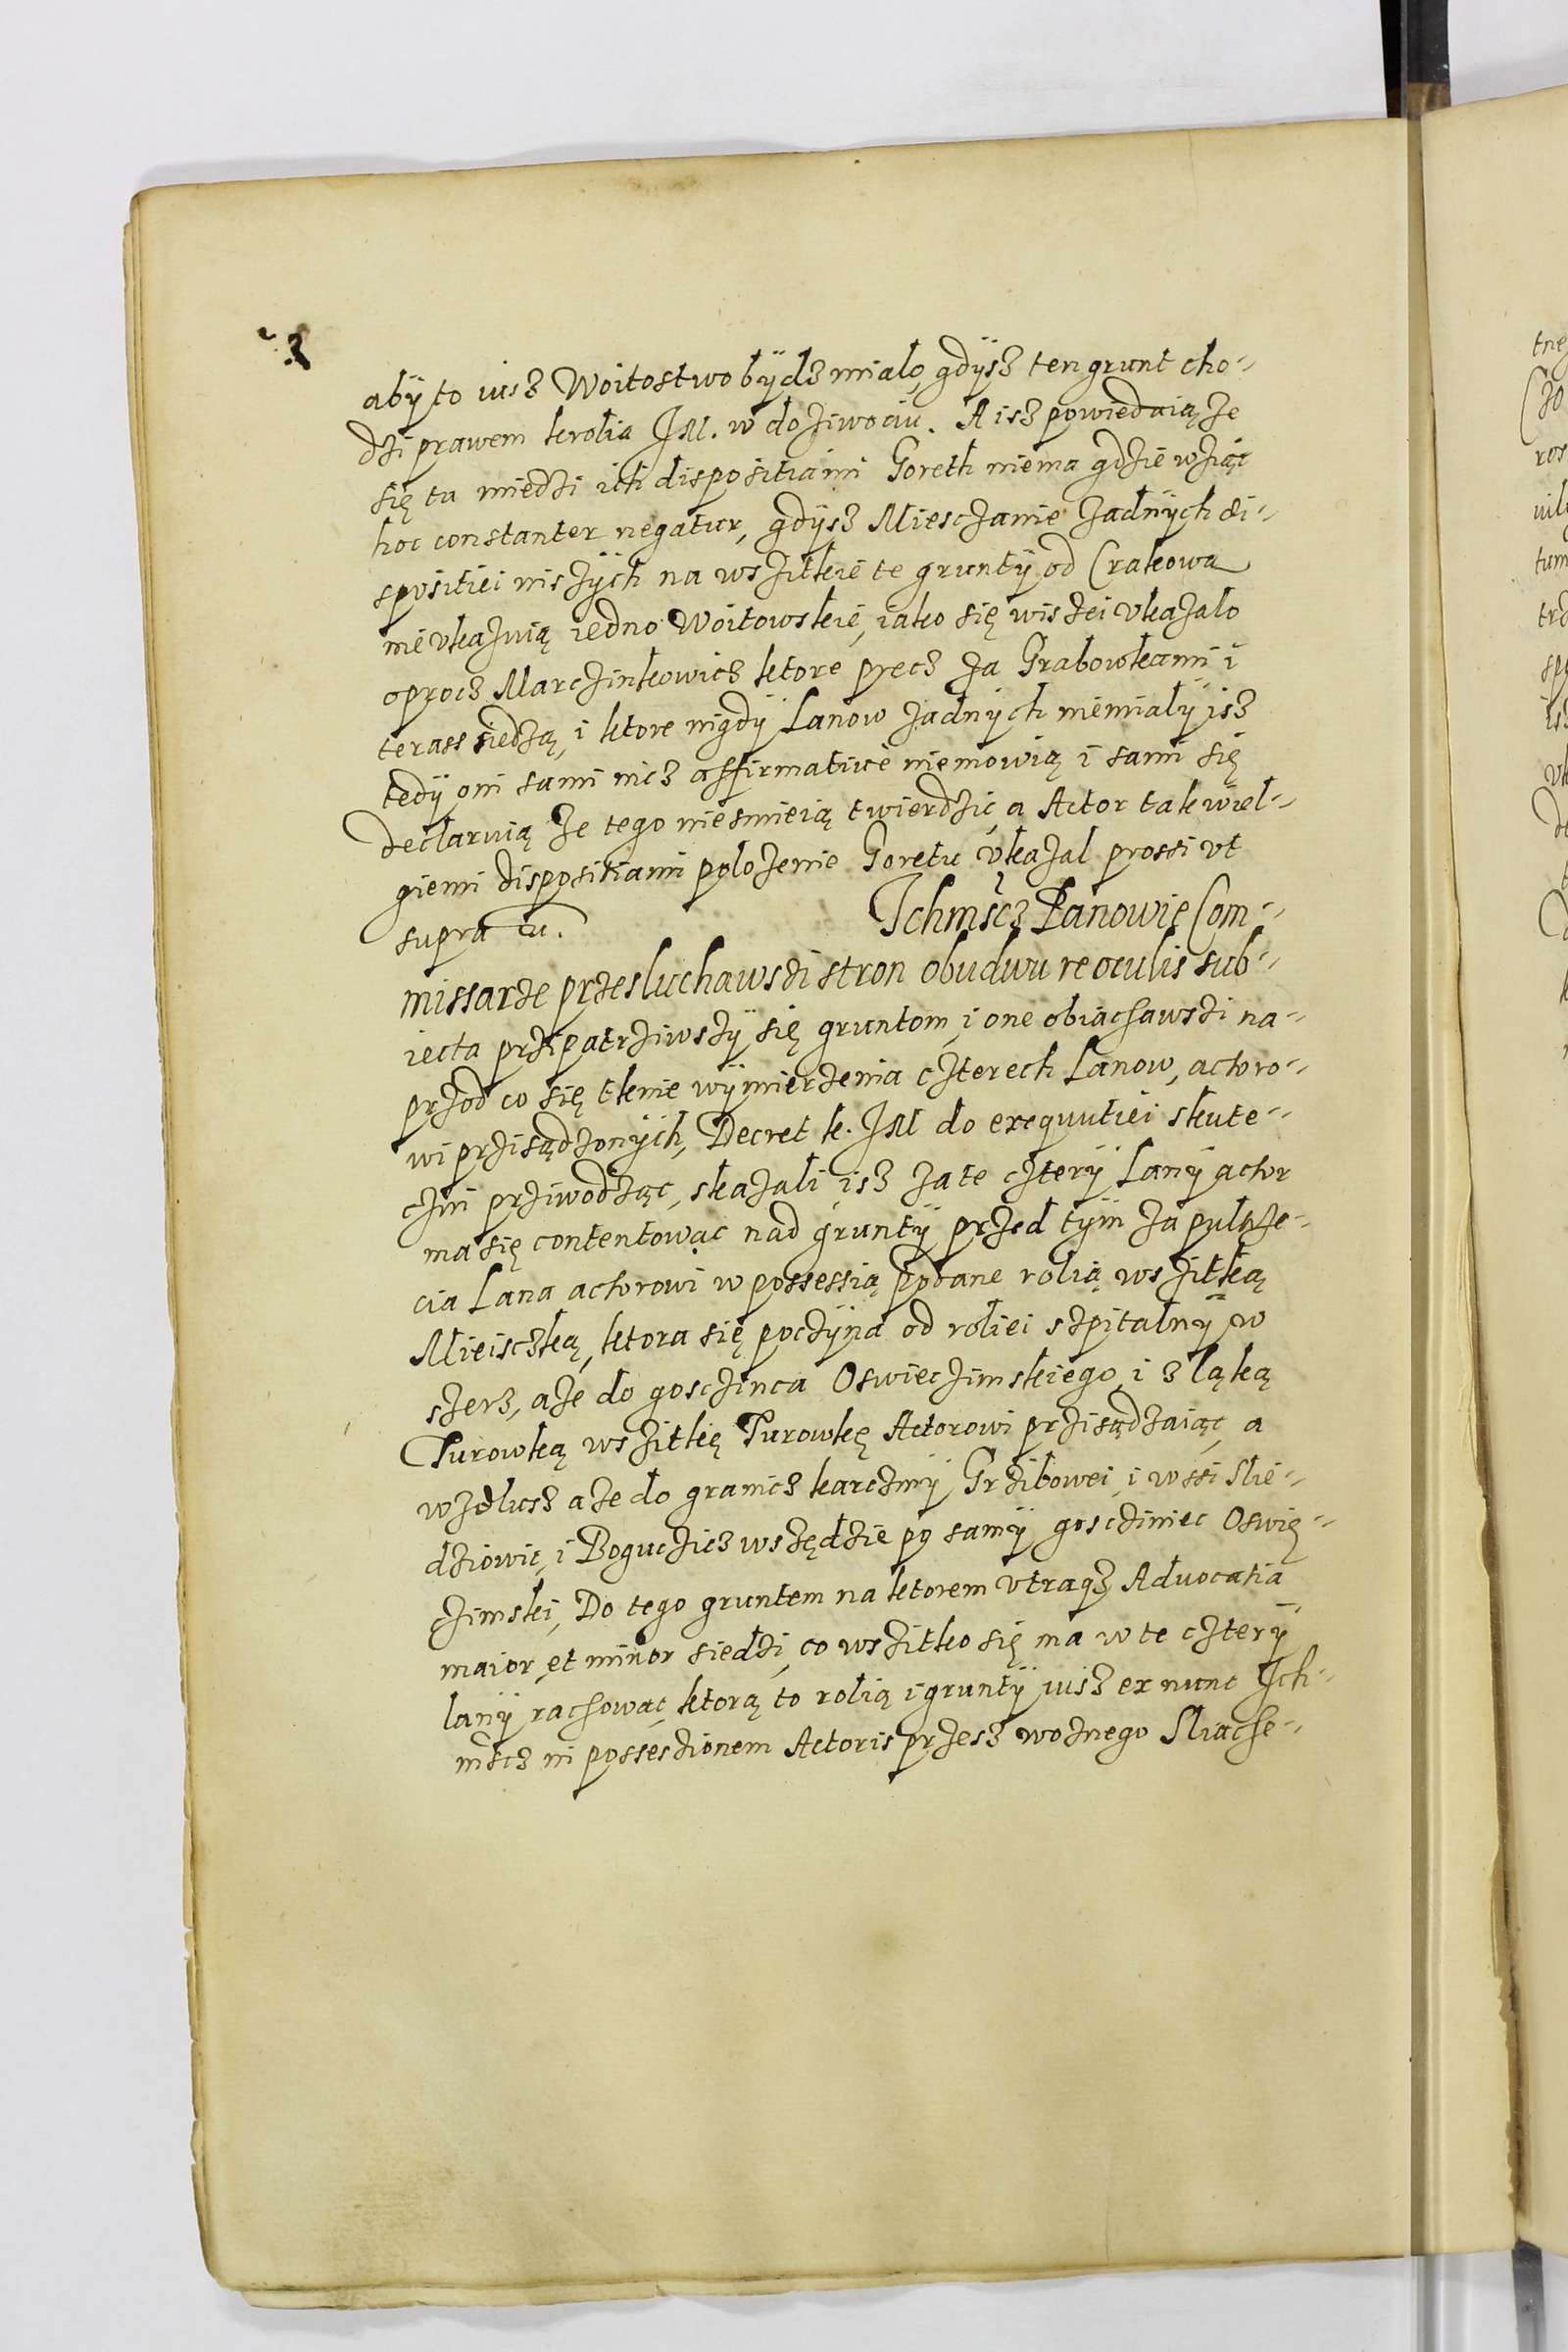 abÿ to iusz Woitostwo bÿdz mialo, gdÿsz ten grunt cho-
dzi prawem krolia JM. w doziwociu. A isz powiedaią ze
się tu miedzi ich dispositiami Goreth niema gdzie wziąc
hoc constanter negatur, gdÿsz Miesczanie zadnÿch di-
spositiei niszÿch na wszitkie te gruntÿ od Crakowa
nie vkazuią iedno Woitowskie, iako się wiszei vkazalo
oprocz Marczinkowicz ktore precz za Grabowkami i
terass siedzą, i ktore nigdÿ Lanow zadnÿch niemialÿ isz
tedÿ oni sami nicz affirmative niemowią i sami się
declaruią ze tego niesmieią twierdzic, a Actor tak wiel-
giemi dispositiami polozenie Goretu vkazal prossi vt
supra
Ichmscz Panowie Com-
missarze przesluchawszi stron obudwu re oculis sub-
iecta przipatrziwszÿ się gruntom i one obiachawszi na-
przod co się tknie wÿmierzenia czterech Lanow, actoro-
wi przisądzonÿch, Decret k. JM do exequutiei skute-
czni prziwodząc, skazali isz za te czterÿ Lanÿ actor
ma się contentowac nad gruntÿ przed tÿm za pultrze-
cia Lana actorowi w possessią podane rolią wszitką
Mieisczką, ktora się poczÿna od roliei szpitalnÿ w
szerz, aze do gosczinca Oswieczimskiego i z ląką
Turowką wszitkię Turowkę Actorowi przisądzaiąc, a
wzdlusz aze do granicz karczmÿ Grzibowei i wssi Slie-
dziowic, i Boguczicz wszędzie po samÿ goscziniec Oswię-
czimski, Do tego gruntem na ktorem vtraqz Advocatia
maior et minor siedzi, co wszitko się ma w te czterÿ
lanÿ rachowac, ktorą to rolią i gruntÿ iusz ex nunc Ich-
mscz in possessionem Actoris przesz woznego Sliache-